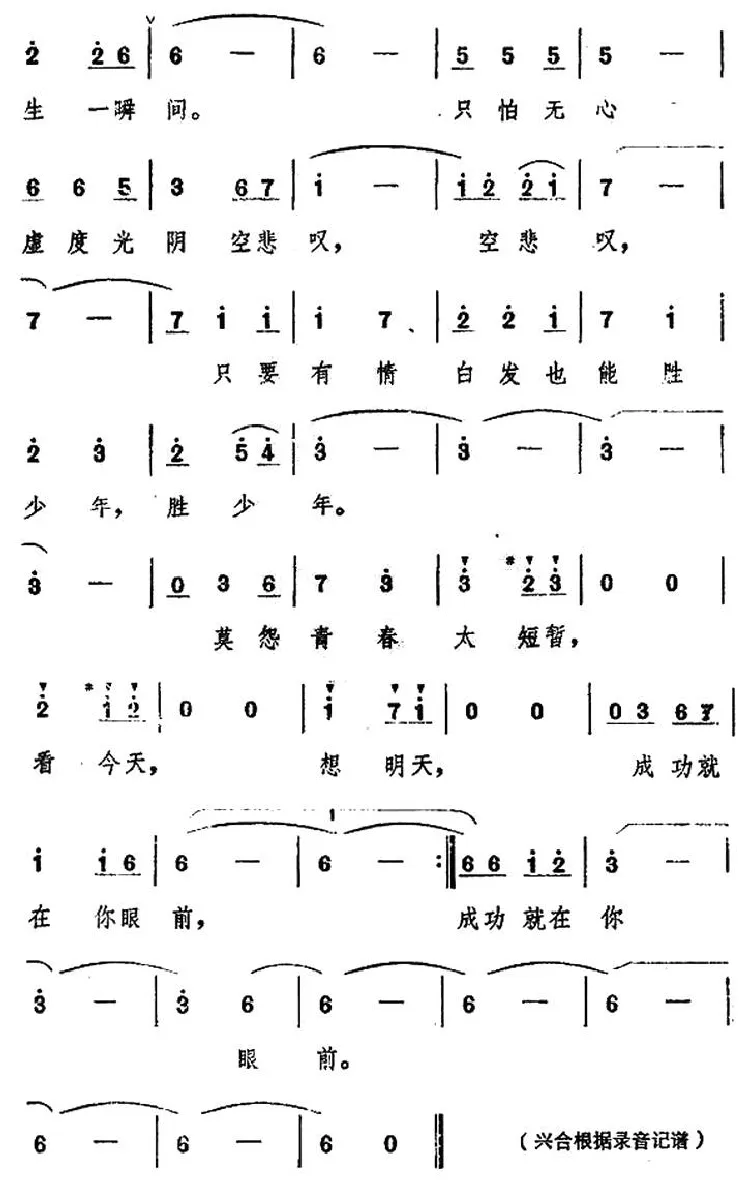 2 26 6 — 6 — 5 5 5 5 —
生 一瞬 间。 只 怕 无 心
6 6 5 3 67 i — i2 2i 7 —
虚 度 光 阴 空悲 叹， 空悲 叹，
7 — 7 i i i 7 2 2 i 7 i
只 要 有 情 白 发 也 能 胜
2 3 2 54 3 — 3 — 3 —
少 年， 胜 少 年。
3 — 0 3 6 7 3 3 #23 0 0
莫 怨 青 春 太 短暂，
2 #12 0 0 i 7i 0 0 03 67
看 今天， 想 明天， 成功就
1
i i6 6 — 6 — :66 i2 3 —
在 你眼 前， 成功 就在 你
3 — 3 6 6 — 6 — 6 —
眼 前。
6 — 6 — 6 0 （兴合根据录音记谱）